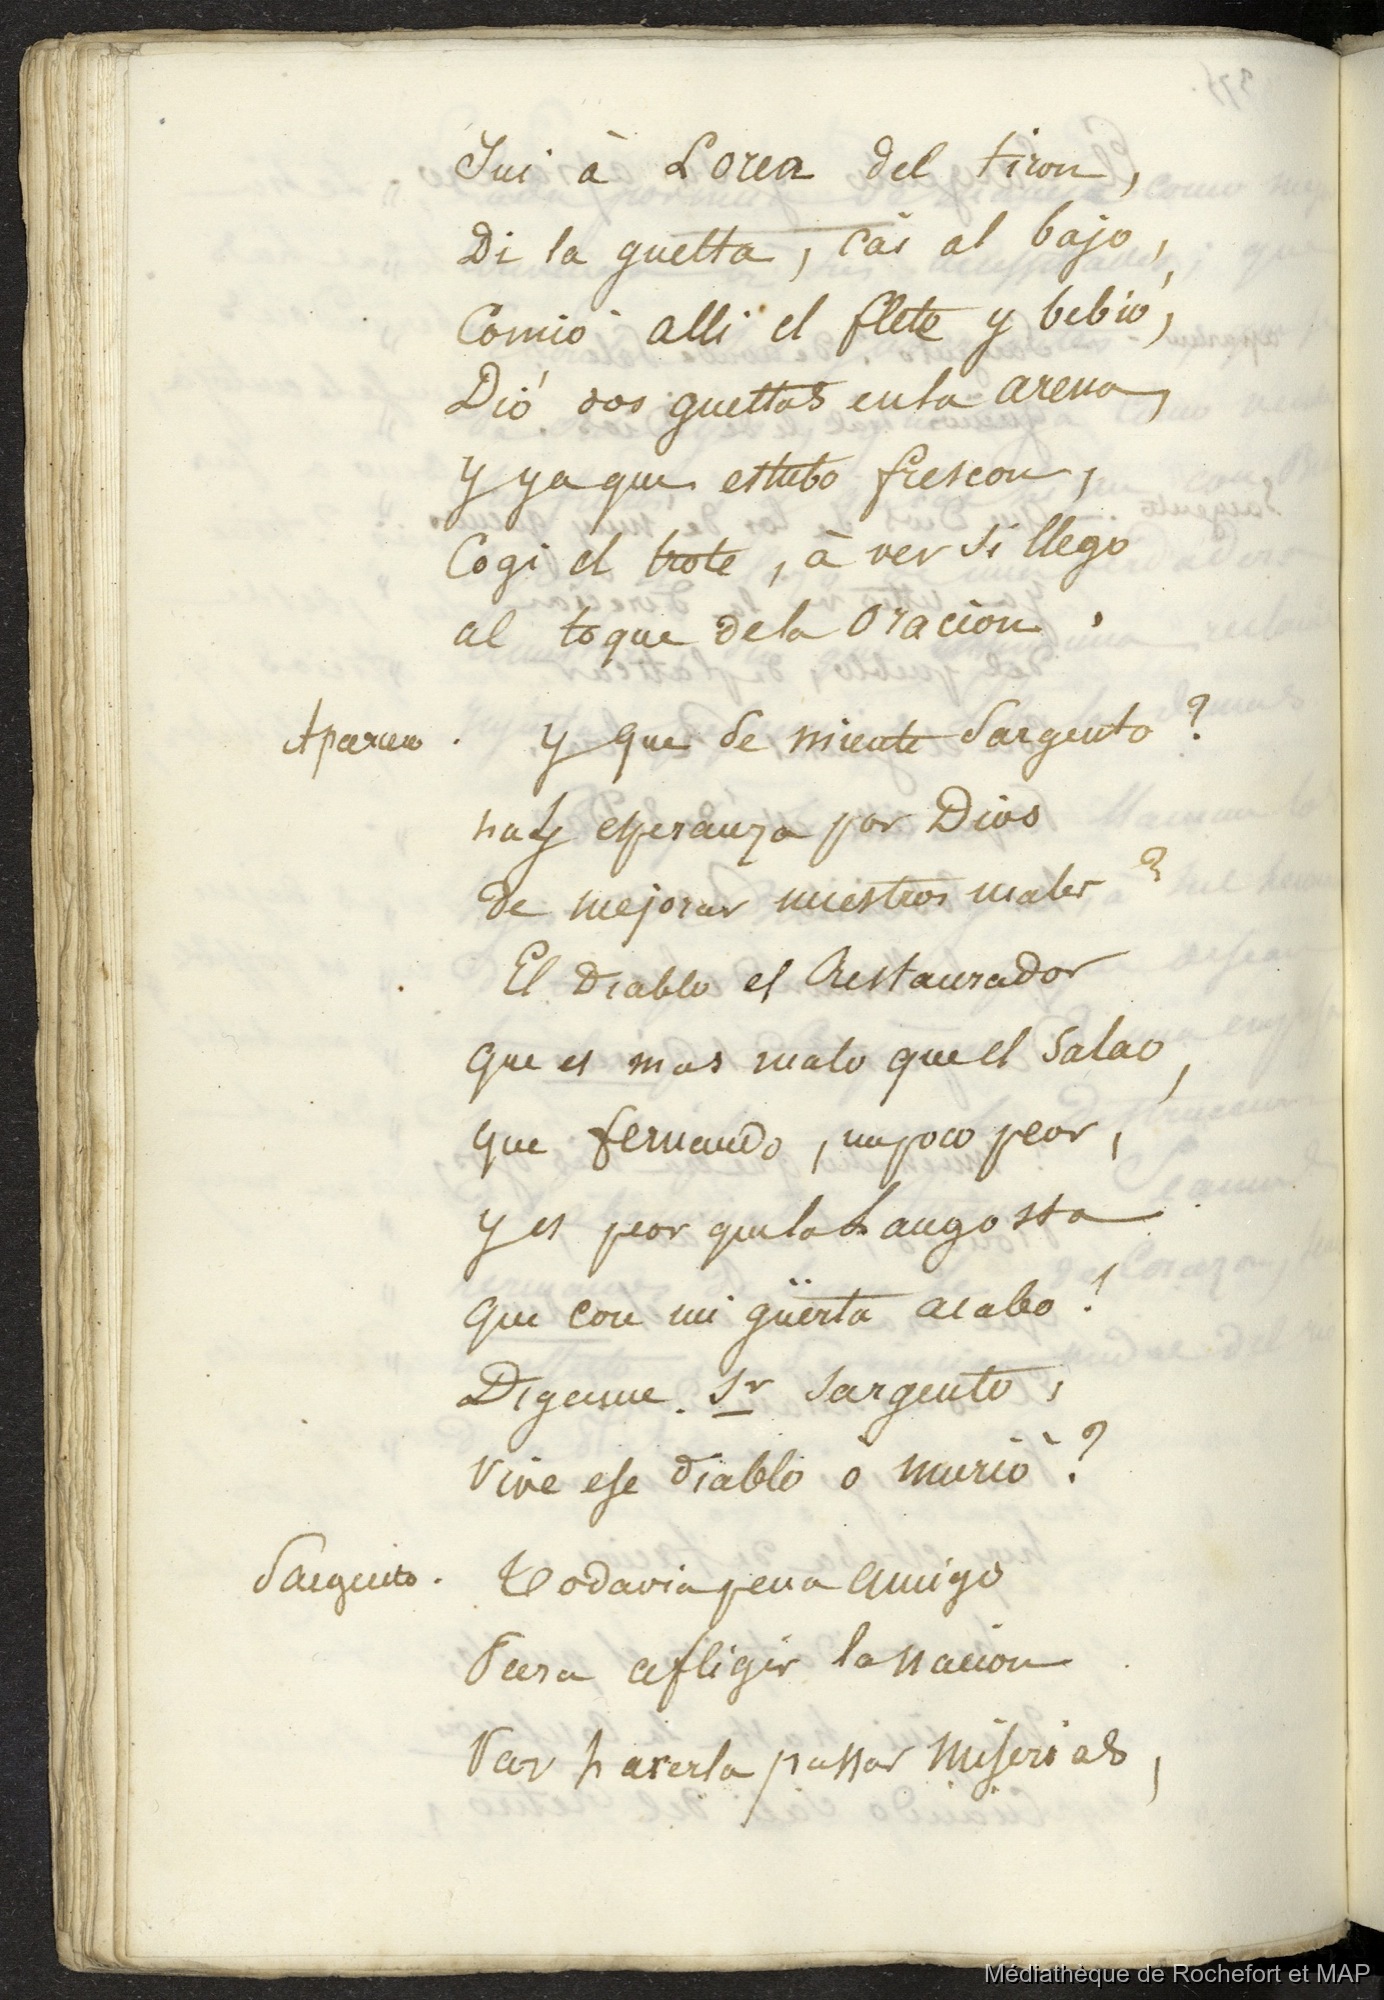 Fui à Lorea del tiron,
Di la guelta, caí al bajo,
Comió alli el flete y bebió,
Dió dos gueltas enla arena,
Y ya que estubo frescon,
Cogi el trote, à ver si llego
al toque dela Oracion.
Aparicio. Y que se miente Sargento?
hay esperanza por Dios
de mejorar nuestros males?
El Diablo el Restaurador
que es mas malo que el Salao,
que fernando, un poco peor,
y es peor que la Langosta
que con mi güerta acabo!
Digame Sr Sargento,
Vive ese diablo ó murió?
Sargento. Todavia pena Amigo
Para afligir la nacion
Par haserla passar miserias,
Médiathèque de Rochefort et MAP